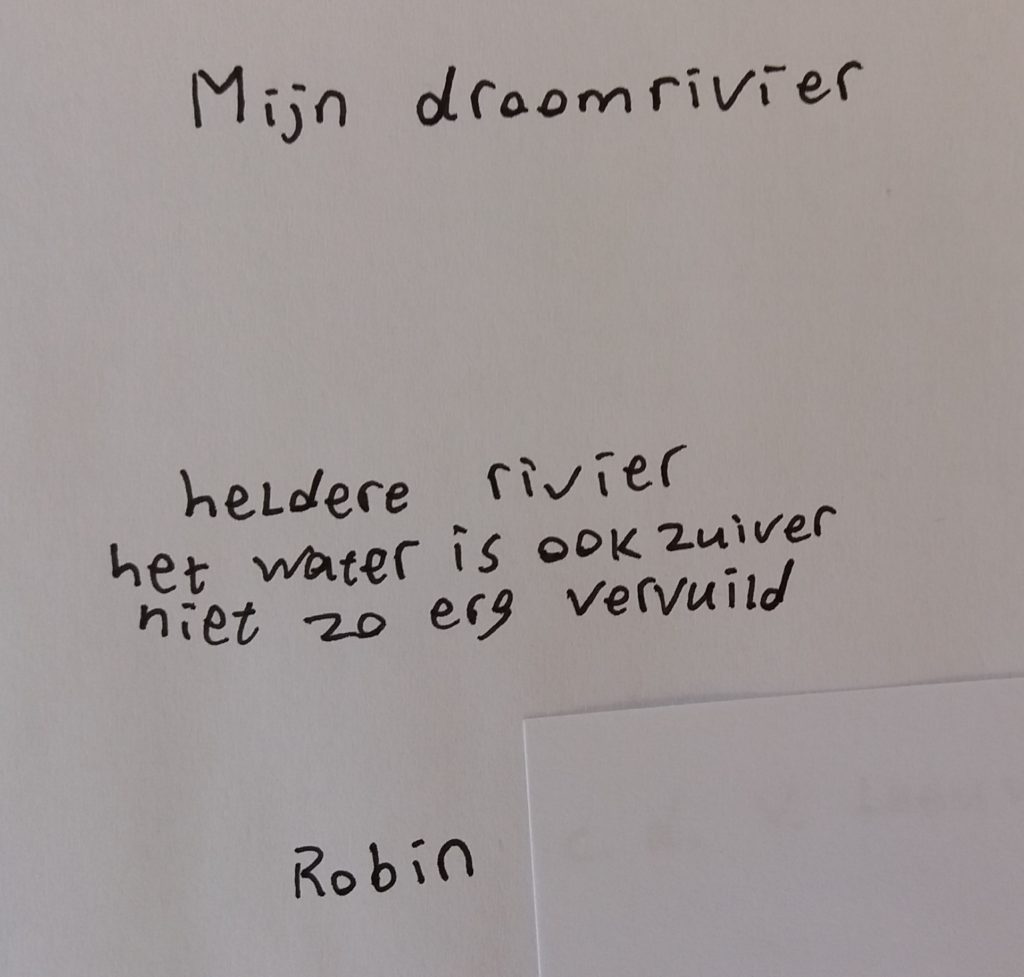 Mijn droomrivier
heldere rivier
het water is ook zuiver
niet zo erg vervuild
Robin